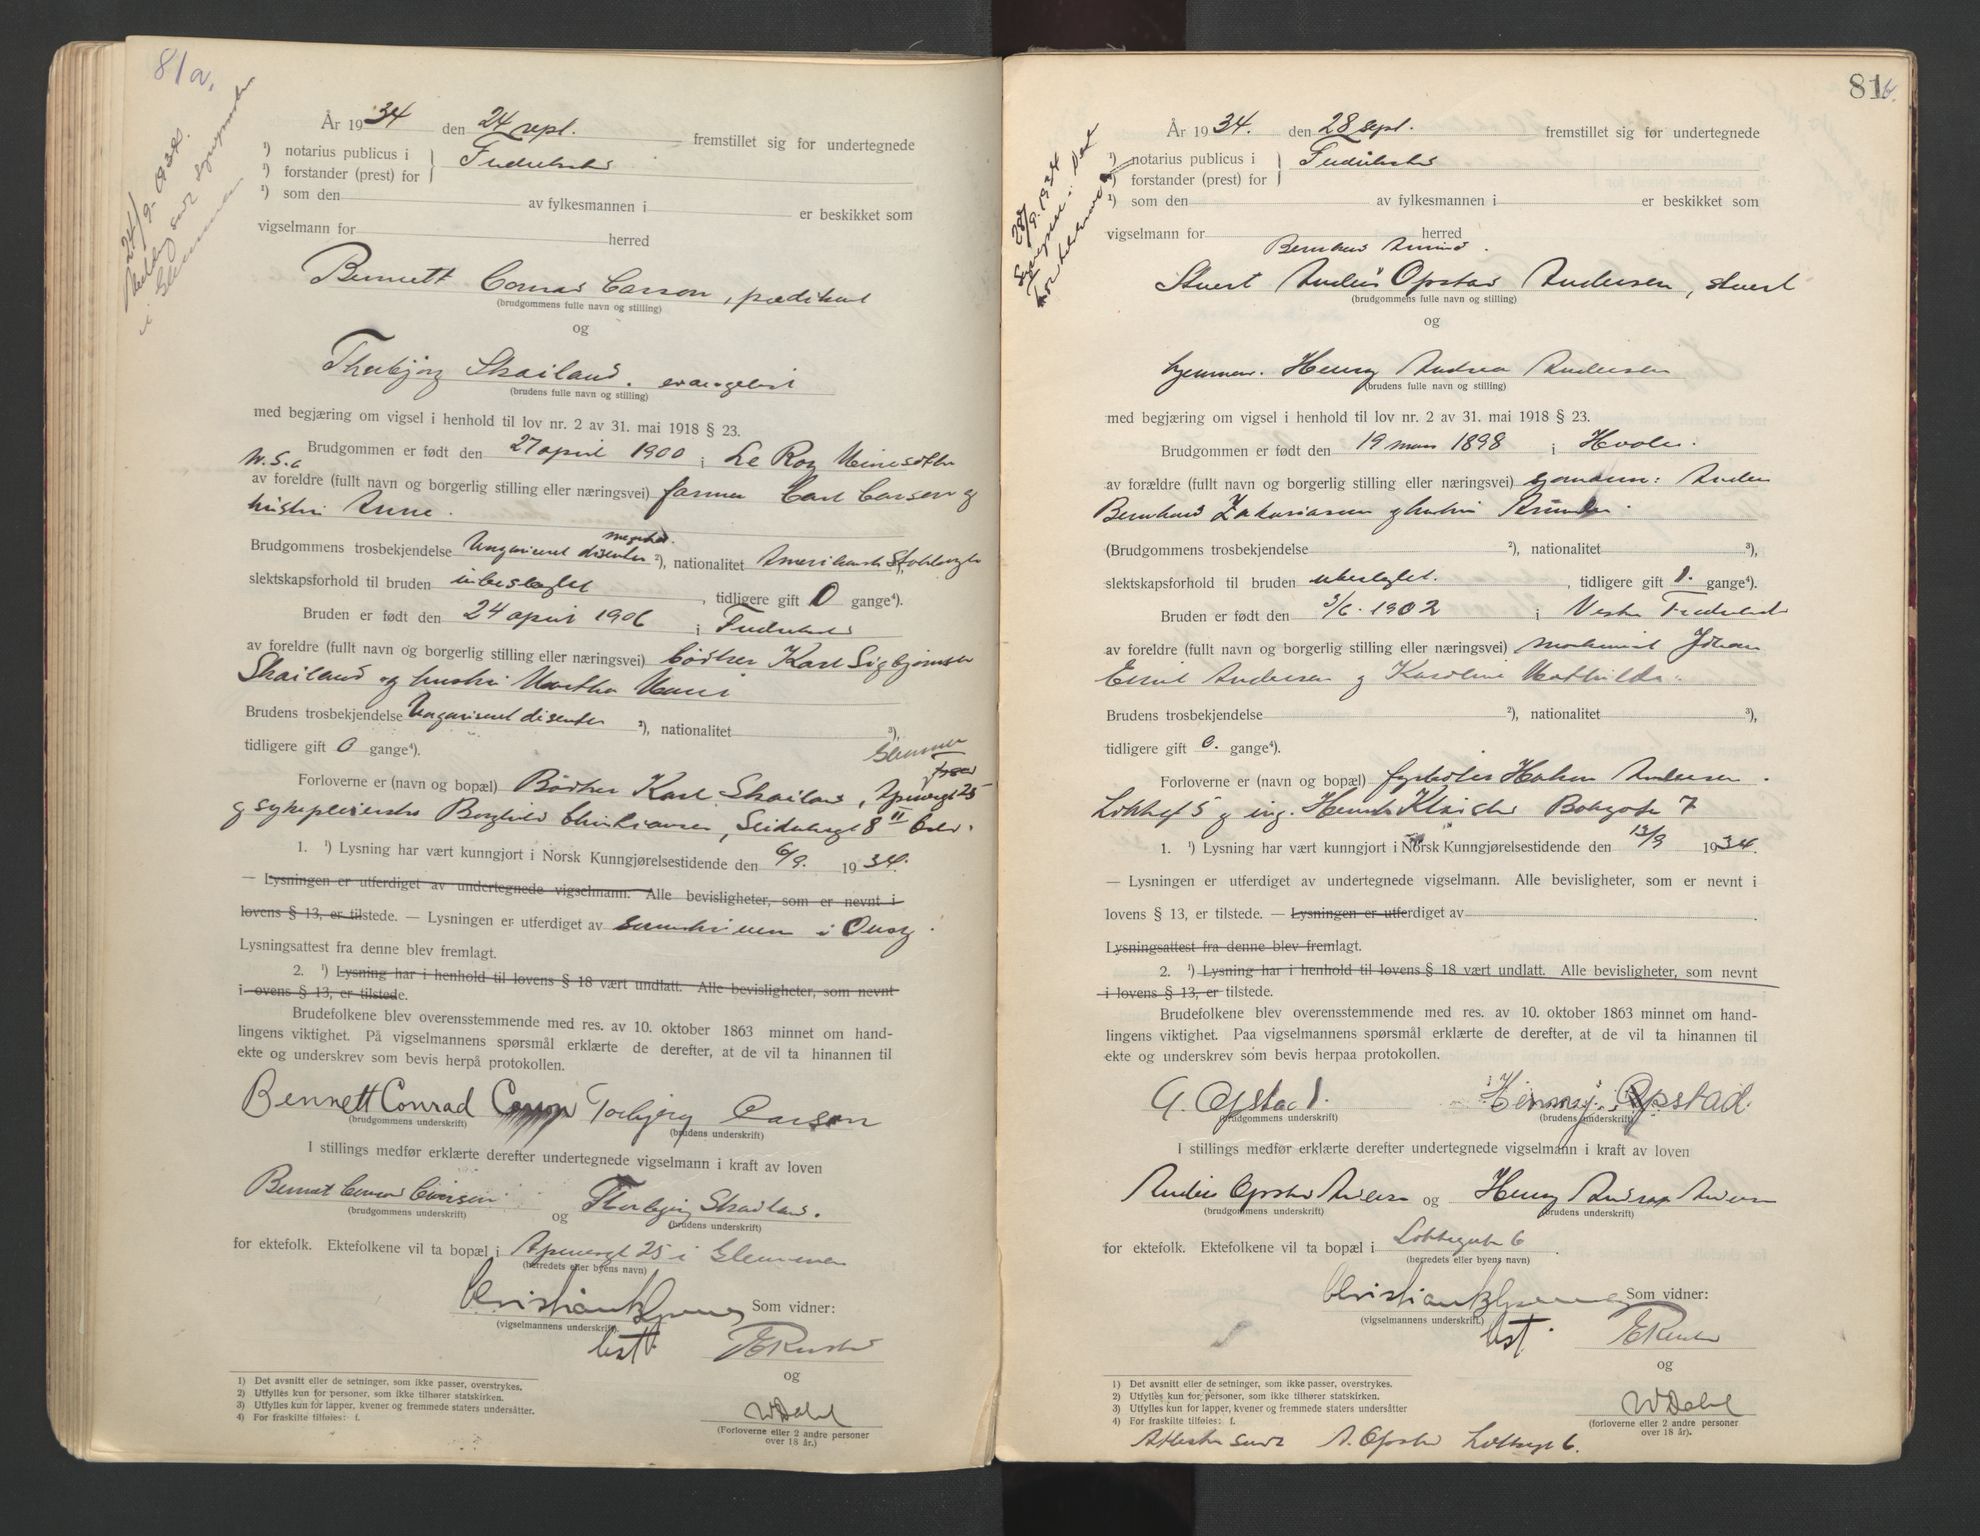 81a.
24/9. 1934.
Melding sendt
i Glemmen
År 1934 den 24 sept. fremstillet sig for undertegnede
¹) notarius publicus i } Fredrikstad
¹) forstander (prest) for
¹) som den av fylkesmannen i er beskikket som
vigselmann for herred
Bennett Conrad Carson, predikant
(brudgommens fulle navn og stilling)
og
Thorbjørg Skailand. evangelist
(brudens fulle navn og stilling)
med begjæring om vigsel i henhold til lov nr. 2 av 31. mai 1918 § 23.
Brudgommen er født den 27 april 1900 i Le Roy Minesotta
U.S.A
av foreldre (fullt navn og borgerlig stilling eller næringsvei) farmer Carl Carson og
hustru Anne.
Brudgommens trosbekjendelse Uorganiseret disenter ²), nationalitet Amerikansk Statsborger
slektskapsforhold til bruden ubeslegtet, tidligere gift 0 gange⁴).
Bruden er født den 24 april 1906 i Fredrikstad
av foreldre (fullt navn og borgerlig stilling eller næringsvei) bødker Karl Sigbjørnsen
Skailand og hustru Martha Marie
Brudens trosbekjendelse Uorganiseret disenter ²), nationalitet ³),
tidligere gift 0 gange⁴).
Glemmen
Forloverne er (navn og bopæl) Bødker Karl Skailand, Apenesgt 25
og sykepleierske Borghild Christiansen, Seiduksgt 8 II Oslo.
1. ¹) Lysning har vært kunngjort i Norsk Kunngjørelsestidende den 6/9. 1934.
— Lysningen er utferdiget av undertegnede vigselmann. Alle bevisligheter, som er nevnt i
lovens § 13, er tilstede. — Lysningen er utferdiget av sorenskriveren i Onsøy.
Lysningsattest fra denne blev fremlagt.
2. ¹) Lysning har i henhold til lovens § 18 vært undlatt. Alle bevisligheter, som nevnt
i lovens § 13, er tilstede.
Brudefolkene blev overensstemmende med res. av 10. oktober 1863 minnet om hand-
lingens viktighet. På vigselmannens spørsmål erklærte de derefter, at de vil ta hinannen til
ekte og underskrev som bevis herpå protokollen.
Bennett Conrad Carson Torbjørg Carson
(brudgommens underskrift) (brudens underskrift)
I stillings medfør erklærte derefter undertegnede vigselmann i kraft av loven
Bennet Conrad Carson og Thorbjørg Skailand.
(brudgommens underskrift) (brudens underskrift)
for ektefolk. Ektefolkene vil ta bopæl i Apenesgt 25 i Glemmen
(herredets eller byens navn)
Som vidner:
(vigselmannens underskrift)
cst.
og
W Dahl
(Forloverne eller 2 andre personer
over 18 år.)
1) Det avsnitt eller de setninger, som ikke passer, overstrykes.
2) Utfylles kun for personer, som ikke tilhører statskirken.
3) Utfylles kun for lapper, kvener og fremmede staters undersåtter.
4) For fraskilte tilføies: f.
81b.
28/9. 1934
År 1934. den 28 sept. fremstillet sig for undertegnede
¹) notarius publicus i } Fredrikstad
¹) forstander (prest) for
¹) som den av fylkesmannen i er beskikket som
vigselmann for herred
Stuert Anders Opstad Andersen, stuert
(brudgommens fulle navn og stilling)
og
hjemmev. Henny Andrea Andersen
(brudens fulle navn og stilling)
med begjæring om vigsel i henhold til lov nr. 2 av 31. mai 1918 § 23.
Brudgommen er født den 19 mars 1898 i Hvaler.
av forældre (fullt navn og borgerlig stilling eller næringsvei) gjendom: Anders
Bernhard Zakariasen og hustru
(Brudgommens trosbekjendelse ²), nationalitet ³),
slektskapsforhold til bruden ubeslegtet., tidligere gift 1. gange⁴).
Bruden er født den 3/6. 1902 i Vestre Fredrikstad
av foreldre (fullt navn og borgerlig stilling eller næringsvei) maskinist Johan
Emil Andersen og Karoline Mathilde.
Brudens trosbekjendelse ²), nationalitet ³),
tidligere gift 0. gange⁴).
Forloverne er (navn og bopæl) fyrbøter Hakon Andersen.
Lokkegt 5 og ing. Henrik Klaister Bakgate 7
1. ¹) Lysning har vært kunngjort i Norsk Kunngjørelsestidende den 13/9 1934.
— Lysningen er utferdiget av undertegnede vigselmann. Alle bevisligheter, som er nevnt i
lovens § 13, er tilstede. — Lysningen er utferdiget av
Lysningsattest fra denne blev fremlagt.
2. ¹) Lysning har i henhold til lovens § 18 vært undlatt. Alle bevisligheter, som nevnt
i lovens § 13, er tilstede.
Brudefolkene blev overensstemmende med res. av 10. oktober 1863 minnet om hand-
lingens viktighet. Paa vigselmannens spørsmål erklærte de derefter, at de vil ta hinannen til
ekte og underskrev som bevis herpaa protokollen.
A. Opstad. Henny Opstad.
(brudgommens underskrift) (brudens underskrift)
I stillings medfør erklærte derefter undertegnede vigselmann i kraft av loven
Anders Opstad Andersen og Henny Andrea Andersen
(brudgommens underskrift) (brudens underskrift)
for ektefolk. Ektefolkene vil ta bopæl i Lokkegate 6
(herredets eller byens navn)
Som vidner:
(vigselmannens underskrift)
cst.
og
W Dahl
(forloverne eller 2 andre personer
over 18 år).
1) Det avsnitt eller de setninger, som ikke passer, overstrykes.
2) Utfylles kun for personer, som ikke tilhører statskirken.
3) Utfylles kun for lapper, kvener og fremmede staters undersåtter
4) For fraskilte tilføies: f.
Attester sendt A. Opstad Lokkegt 6.